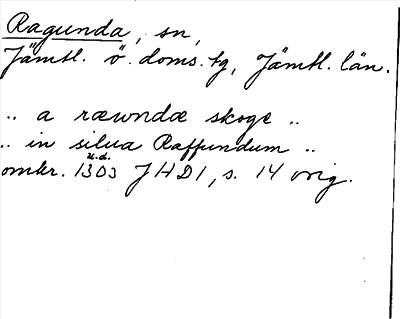 Ragunda, sn,
Jämtl. ö. doms. tg, Jämtl. län.
.. a ræwndæ skoge ..
.. in silua Raffundum ..
u.d.
omkr. 1303 JHD1, s. 14 orig.